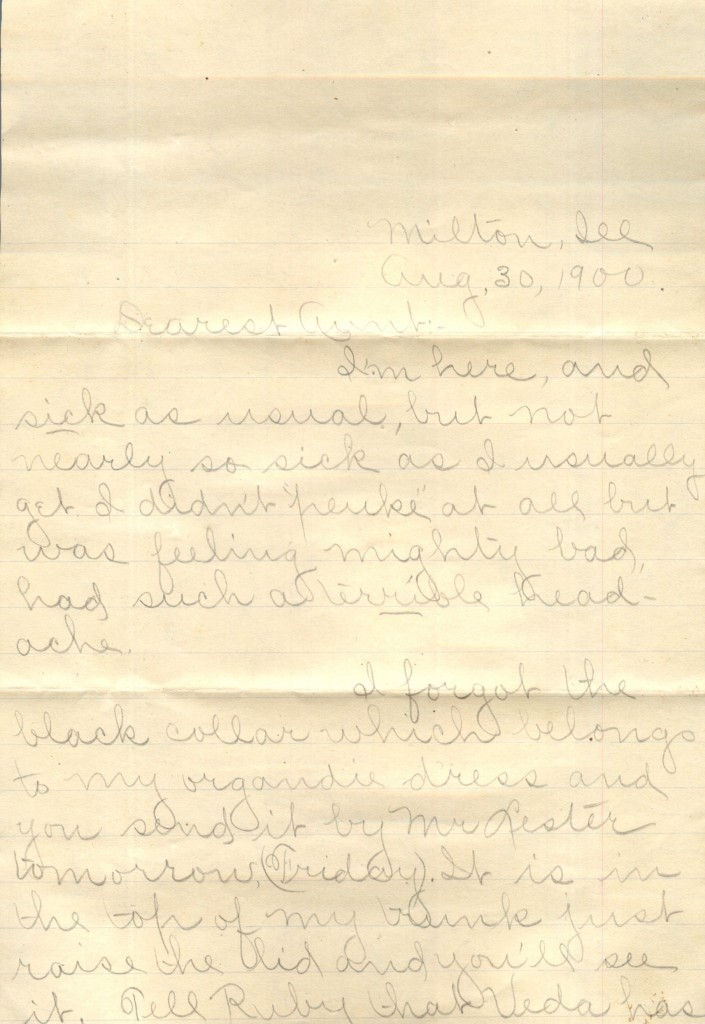 Milton, Ill
Aug, 30, 1900.
Dearest Aunt:-
I'm here, and
sick as usual, but not
nearly so sick as I usually
get. I didn't "peuke" at all but
was feeling mighty bad,
had such a terrible head-
ache.
I forgot the
black collar which belongs
to my organdie dress and
you send it by Mr Lester
tomorrow, (Friday). It is in
the top of my trunk just
raise the lid and you'll see
it. Tell Ruby that Veda has